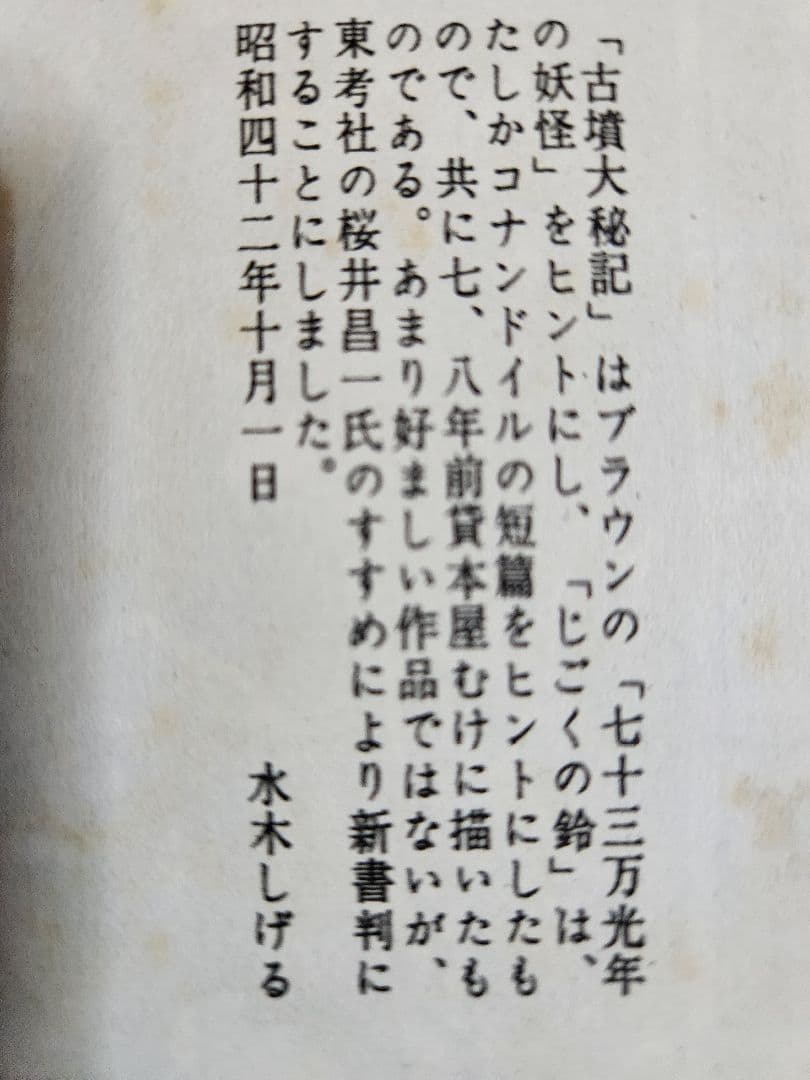 「古墳大秘記」はブラウンの「七十三万光年
の妖怪」をヒントにし、「じごくの鈴」は、
たしかコナンドイルの短篇をヒントにしたも
ので、共に七、八年前貸本屋むけに描いたも
のである。あまり好ましい作品ではないが、
東考社の桜井昌一氏のすすめにより新書判に
することにしました。
昭和四十二年十月一日
水木しげる